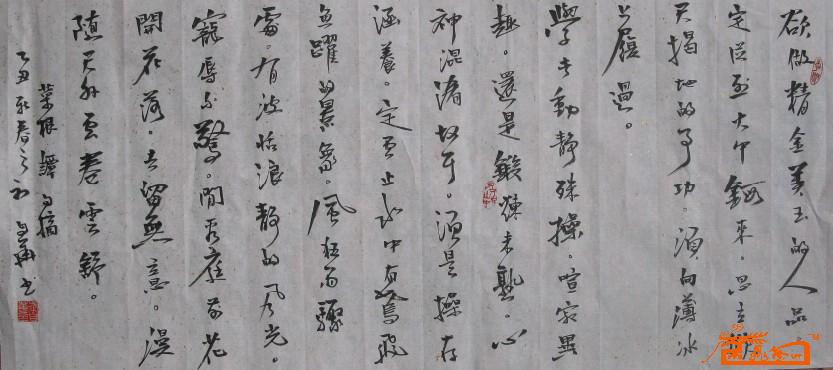 欲做精金美玉的人品
定從烈火中鍛來。思立掀
天揭地的事功。須向薄冰
上履過。
學者動靜殊操。喧寂異
趣。還是鍛煉未熟。心
神混淆故耳。須是操存
涵養。定云止水中有鳶飛
魚躍的景象。風狂雨驟
處。有波恬浪靜的风光。
寵辱不驚。閒看庭前花
開花落。去留無意。漫
隨天外云卷雲舒。
菜根譚句摘
丑新春之初 书